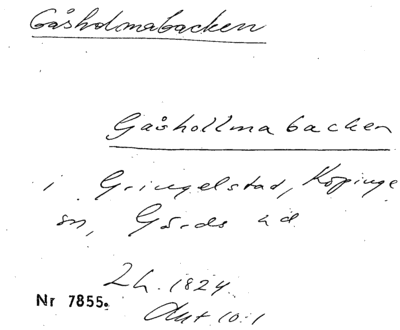 Gåsholmabacken
Gåshollmabacken
i Gringelstad, Köpinge
sn, Gärds hd
Lh. 1824.
Nr 7855.
Akt 10:1